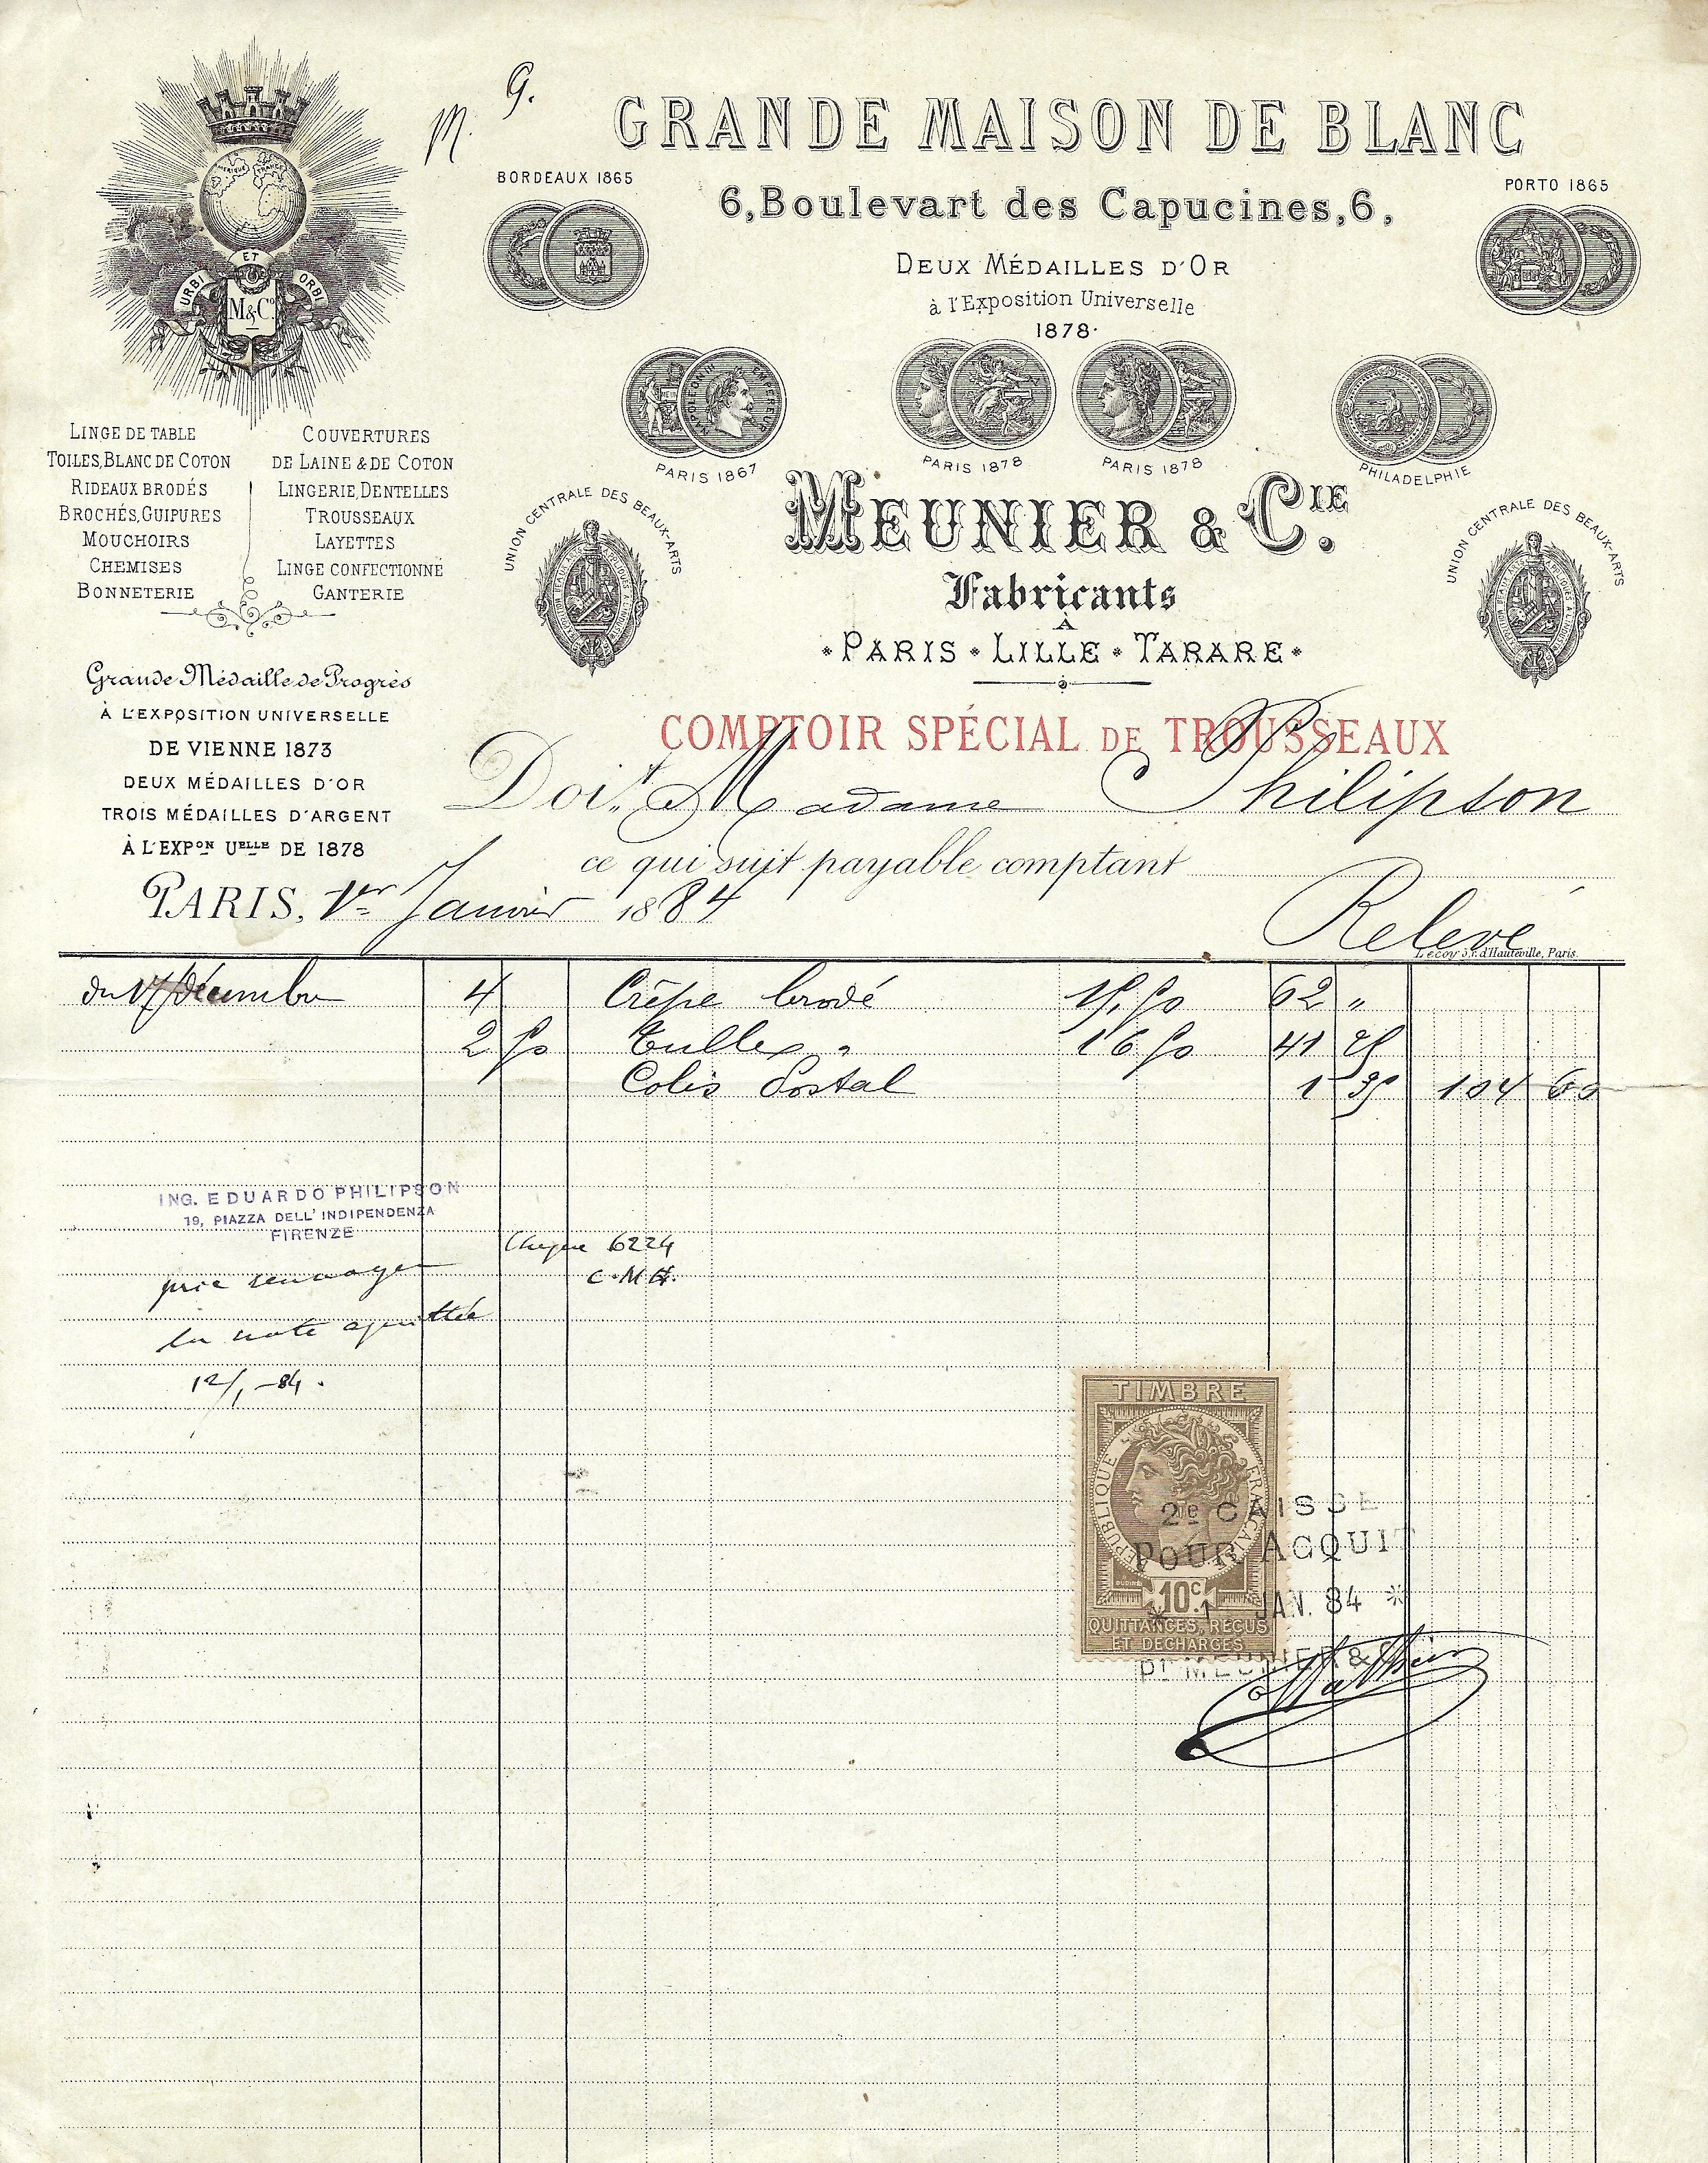 M. G.
GRANDE MAISON DE BLANC
6, Boulevart des Capucines, 6,
DEUX MÉDAILLES D'OR
à l'Exposition Universelle
1878.
BORDEAUX 1865
PORTO 1865
URBI ET ORBI
M & Cº
NAPOLEON III EMPEREUR
PARIS 1867
PARIS 1878
PARIS 1878
PHILADELPHIE
LINGE DE TABLE
TOILES, BLANC DE COTON
RIDEAUX BRODÉS
BROCHÉS, GUIPURES
MOUCHOIRS
CHEMISES
BONNETERIE
COUVERTURES
DE LAINE & DE COTON
LINGERIE, DENTELLES
TROUSSEAUX
LAYETTES
LINGE CONFECTIONNÉ
GANTERIE
UNION CENTRALE DES BEAUX-ARTS
MEUNIER & CIE.
Fabricants
À
PARIS • LILLE • TARARE
UNION CENTRALE DES BEAUX-ARTS
Grande Médaille de Progrès
À L'EXPOSITION UNIVERSELLE
DE VIENNE 1873
DEUX MÉDAILLES D'OR
TROIS MÉDAILLES D'ARGENT
À L'EXPON UELLE DE 1878
COMPTOIR SPÉCIAL DE TROUSSEAUX
Doit Madame Philipson
ce qui suit payable comptant
PARIS, 1er Janvier 1884
Relevé
Lecoy 3, r. d'Hauteville, Paris.
du 17 Décembre 4 Crêpe brodé 15,50 62 "
2 50 Tulle " 16 50 41 25
Colis Postal 1 35 104 60
ING. EDUARDO PHILIPSON
19, PIAZZA DELL' INDIPENDENZA
FIRENZE
Cheque 6224
prie renvoyer
la note acquittée
12/1 -84.
TIMBRE
RÉPUBLIQUE FRANÇAISE
10c.
QUITTANCES, REÇUS
ET DÉCHARGES
2e CAISSE
POUR ACQUIT
* 1 JAN. 84 *
Pr MEUNIER & Cie